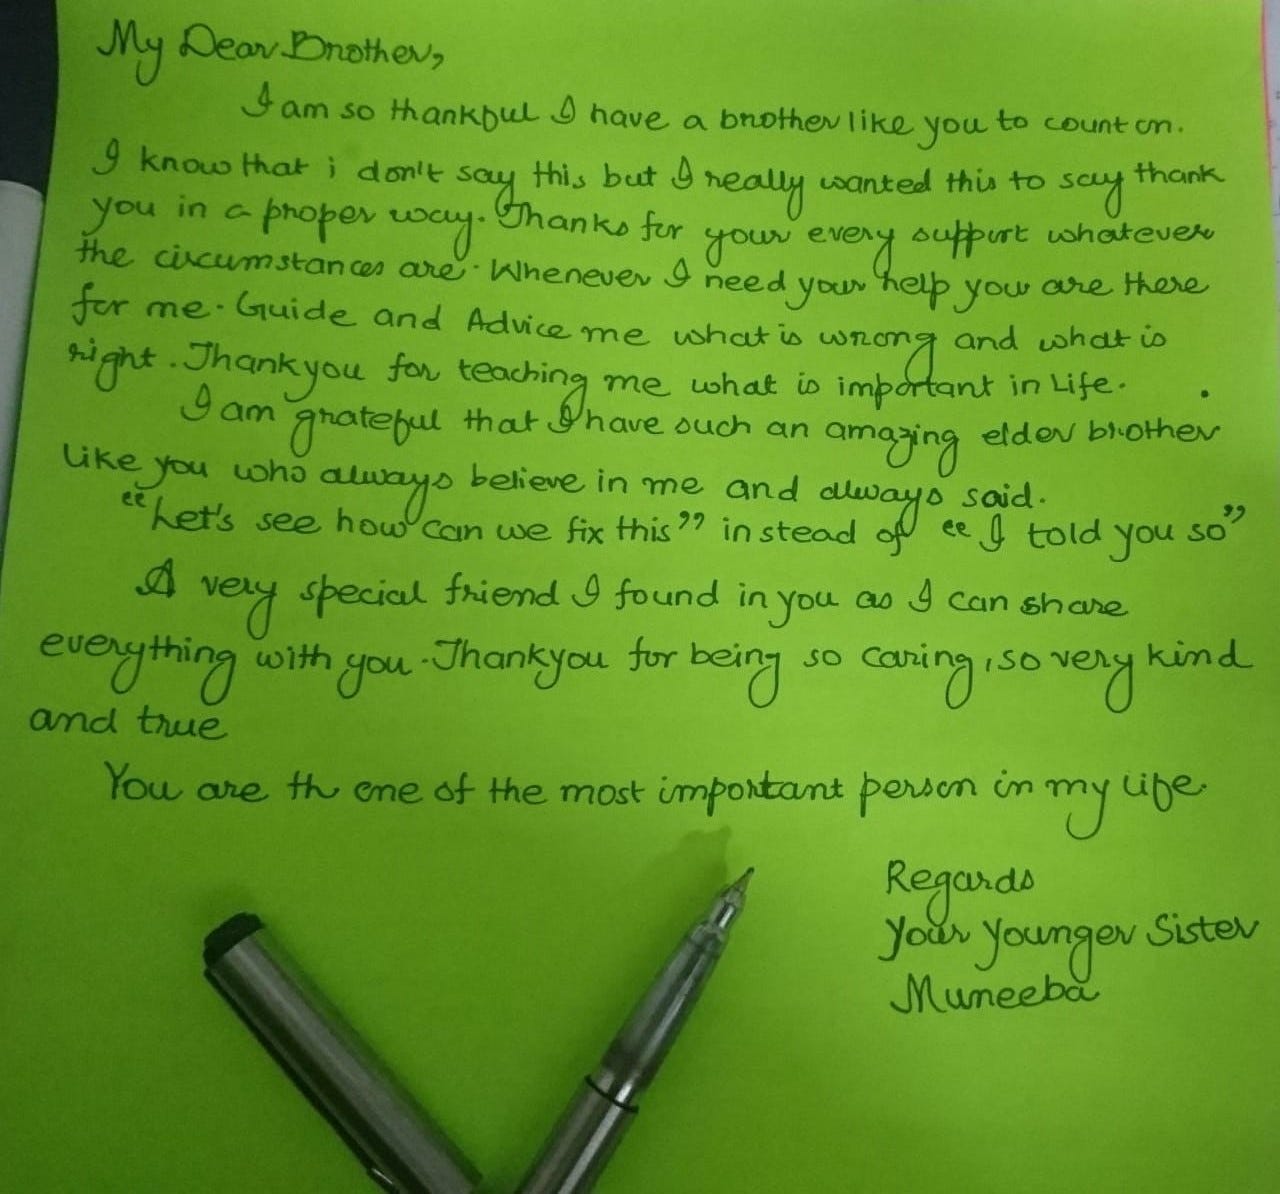 My Dear Brother,
I am so thankful I have a brother like you to count on.
I know that i don't say this but I really wanted this to say thank
you in a proper way. Thanks for your every support whatever
the circumstances are. Whenever I need your help you are there
for me. Guide and Advice me what is wrong and what is
right. Thankyou for teaching me what is important in Life.
I am grateful that I have such an amazing elder brother
like you who always believe in me and always said.
“Let's see how can we fix this” instead of “I told you so”
A very special friend I found in you as I can share
everything with you. Thankyou for being so caring, so very kind
and true
You are th one of the most important person in my life.
Regards
Your Younger Sister
Muneeba